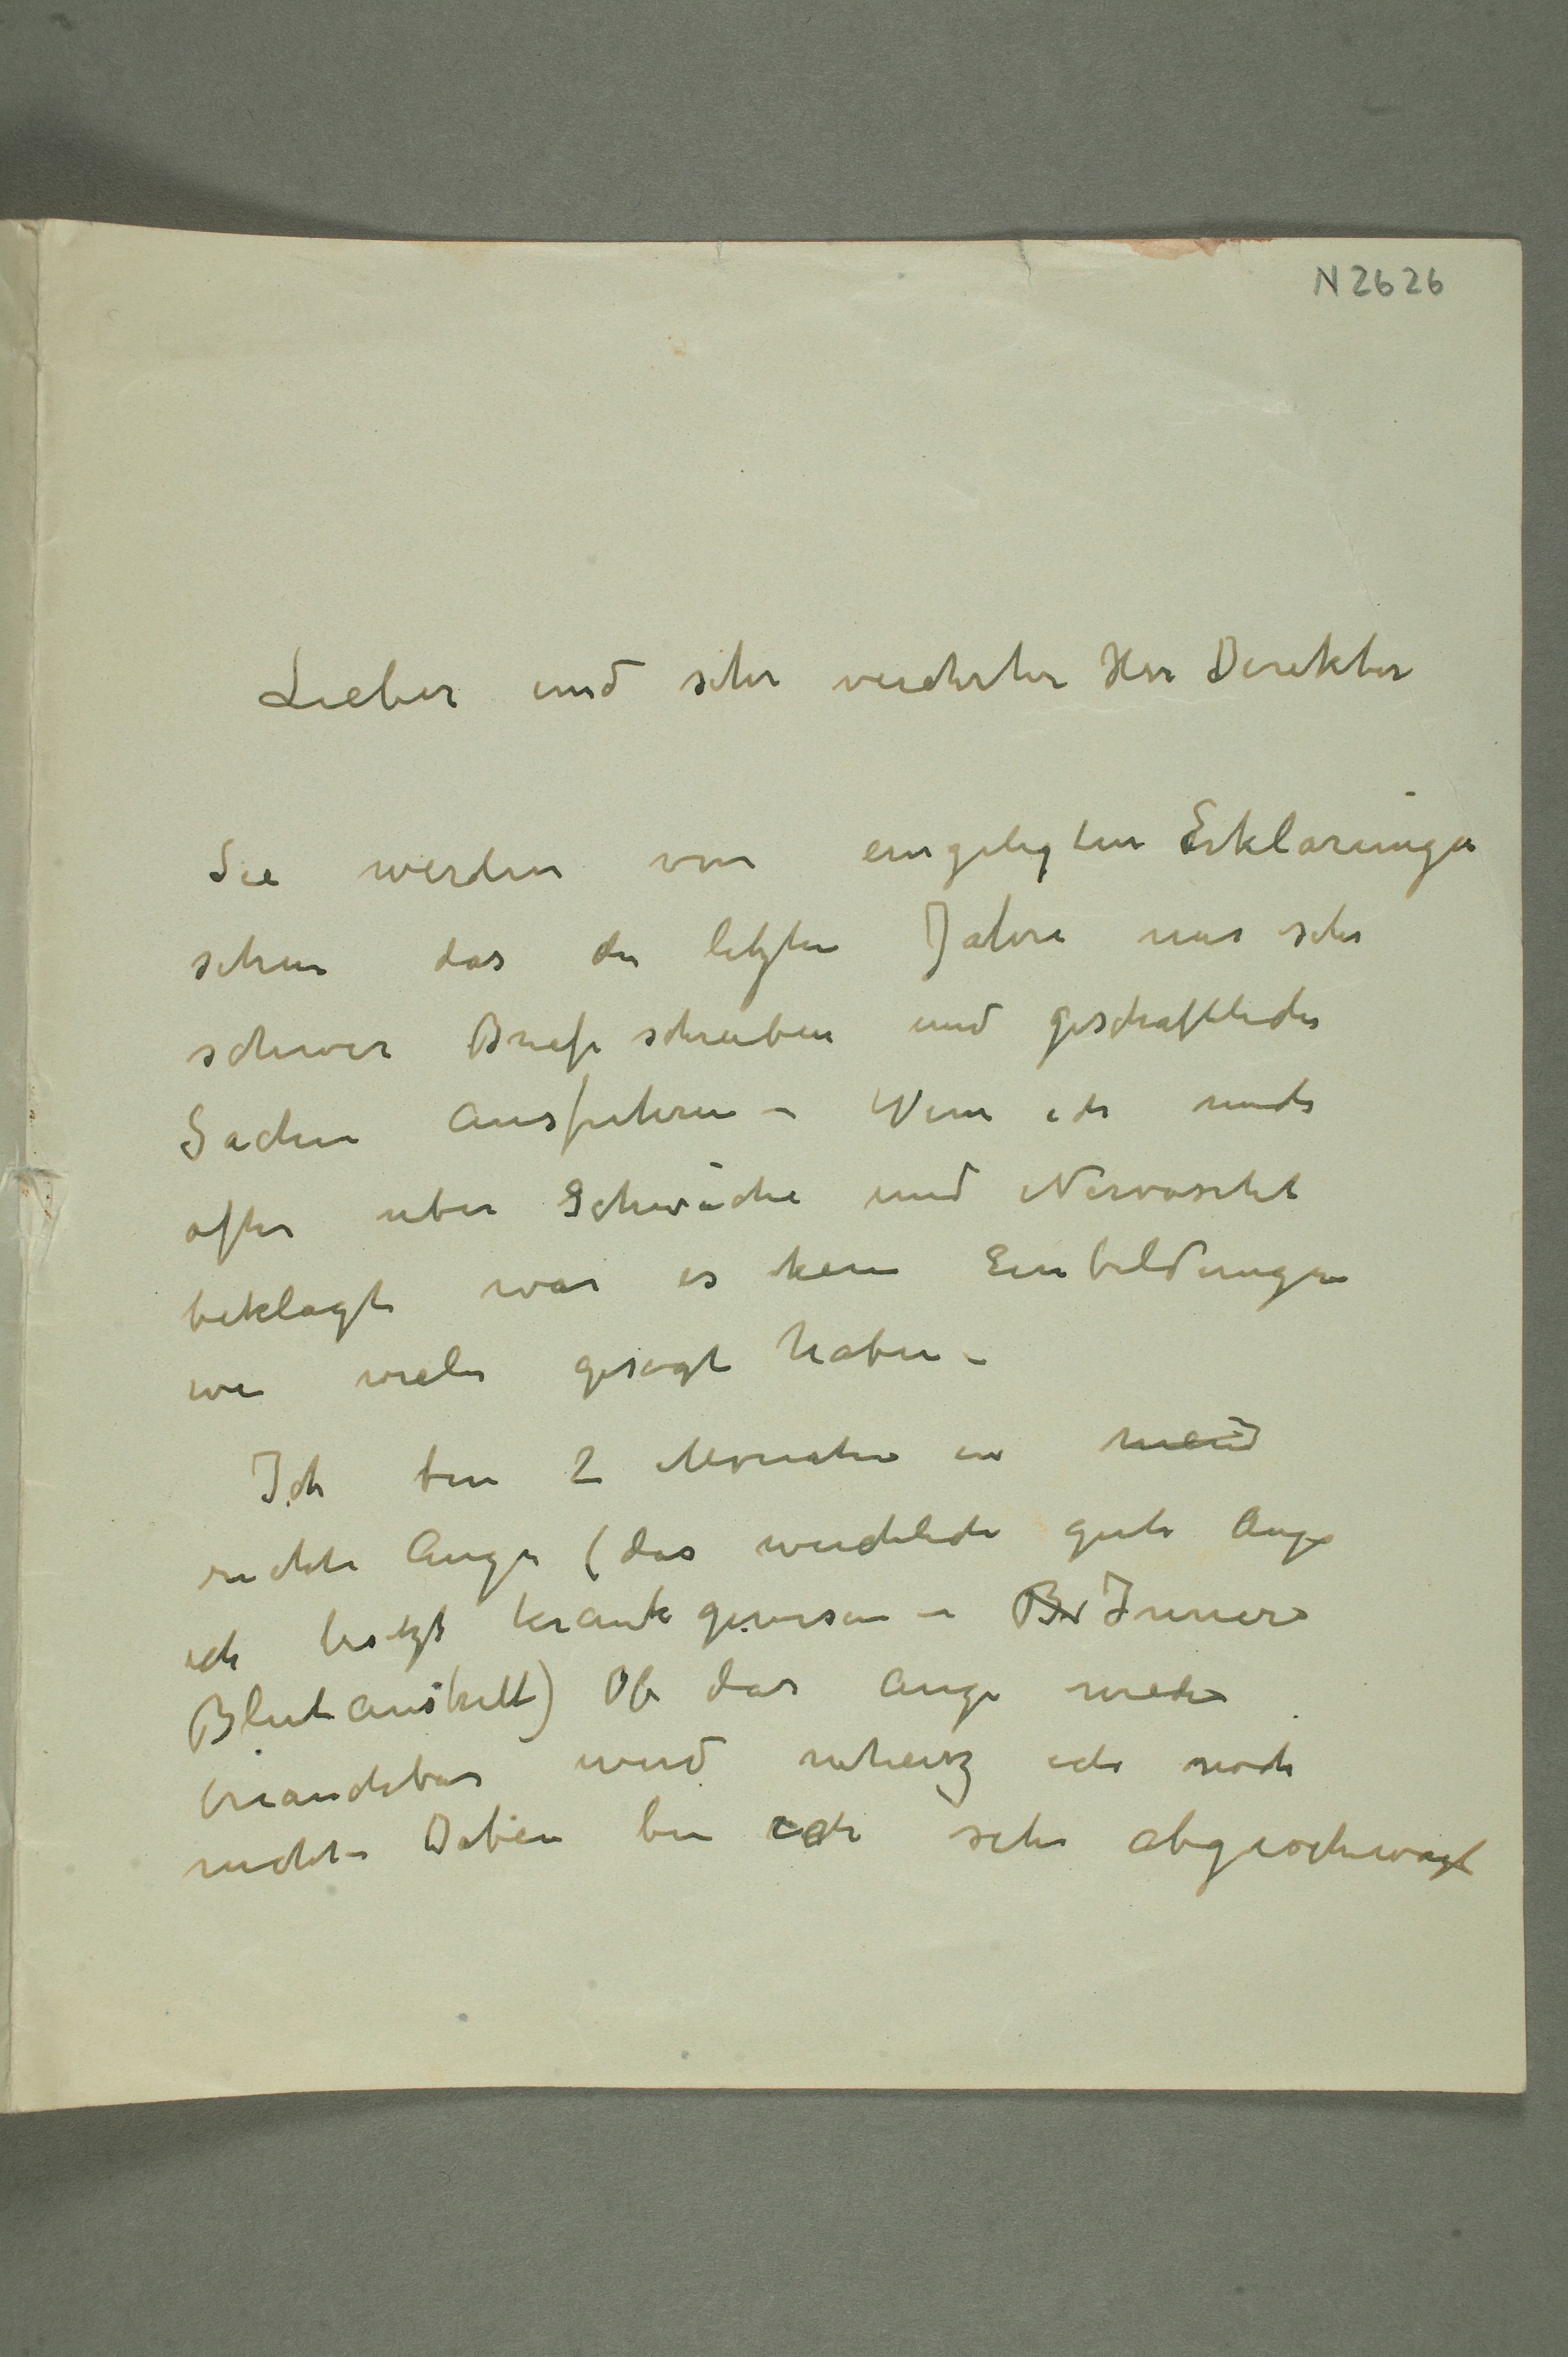 N 2626
Lieber und sehr verehrter Herr Direktor
Sie werden von eingelegten Erklarungen
sehen das die letzten Jahre mir sehr
schwer Briefe schreiben und geschaftliche
Sachen ausfuhren – Wenn ich mich
ofter uber Schwäche und Nervositet
beklagte war es kein Einbildungen
wie viele gesagt haben –
Ich bin 2 Monaten in mein
rechte Auge (das wirchliche gute Auge
ich besitzt krank gewesen – Br Innere
Blutaustritt) Ob das Auge wieder
brauchbar wird weiss ich noch
nicht – Dabei bin ich sehr abgeschwagt